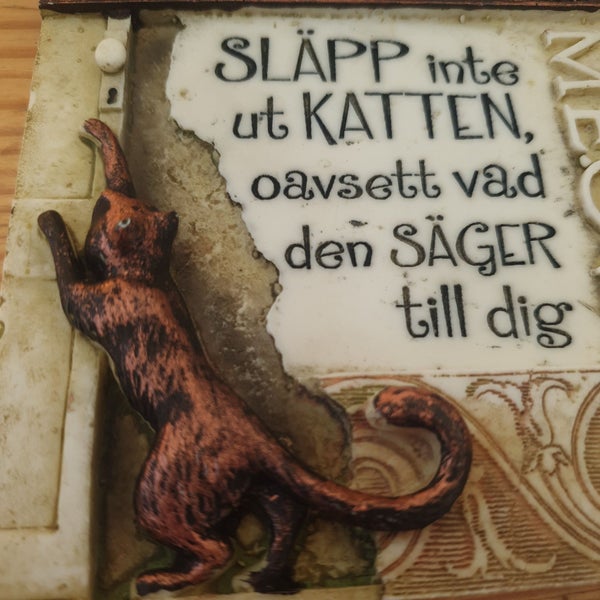 SLÄPP inte
ut KATTEN,
oavsett vad
den SÄGER
till dig